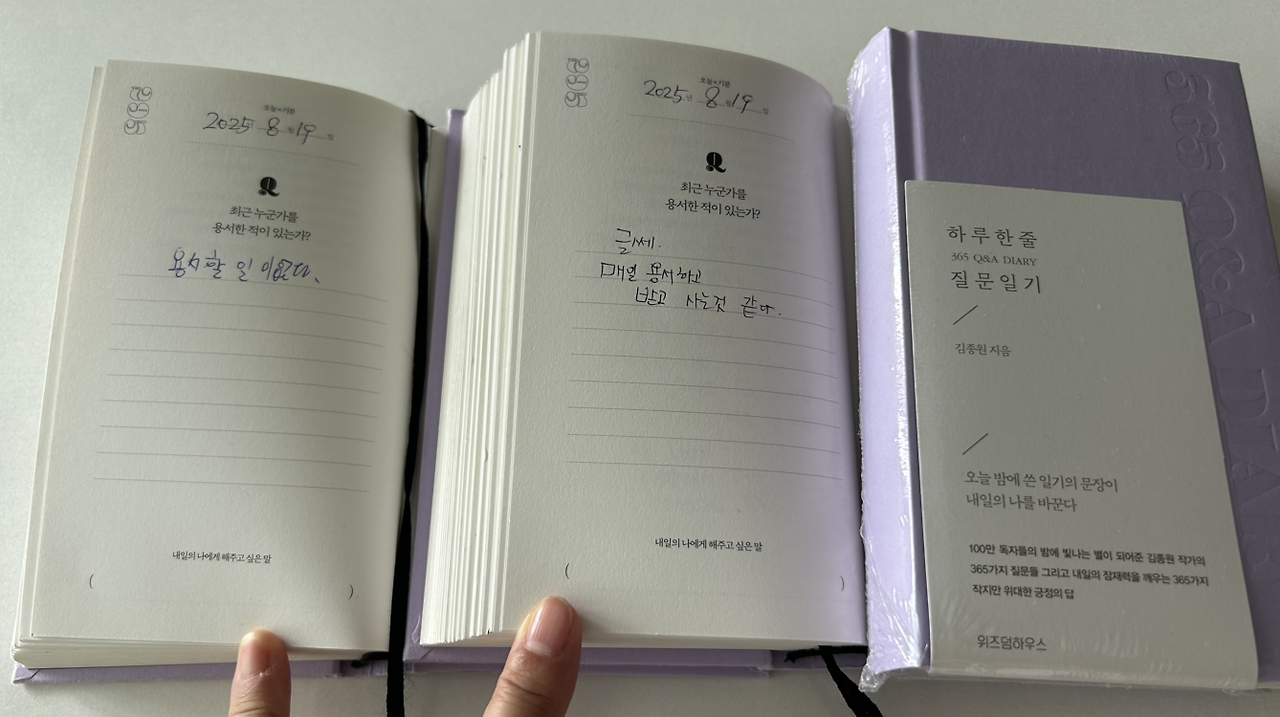 오늘×기분
2025년 8월 19일
Q
최근 누군가를
용서한 적이 있는가?
용서할 일이 없다.
내일의 나에게 해주고 싶은 말
( )
오늘×기분
2025년 8월 19일
Q
최근 누군가를
용서한 적이 있는가?
글쎄.
매일 용서하고
받고 사는것 같다.
내일의 나에게 해주고 싶은 말
( )
365 Q&A DIARY
하루 한 줄
365 Q&A DIARY
질문 일기
김종원 지음
오늘 밤에 쓴 일기의 문장이
내일의 나를 바꾼다
100만 독자들의 밤에 빛나는 별이 되어준 김종원 작가의
365가지 질문들 그리고 내일의 잠재력을 깨우는 365가지
작지만 위대한 긍정의 답
위즈덤하우스